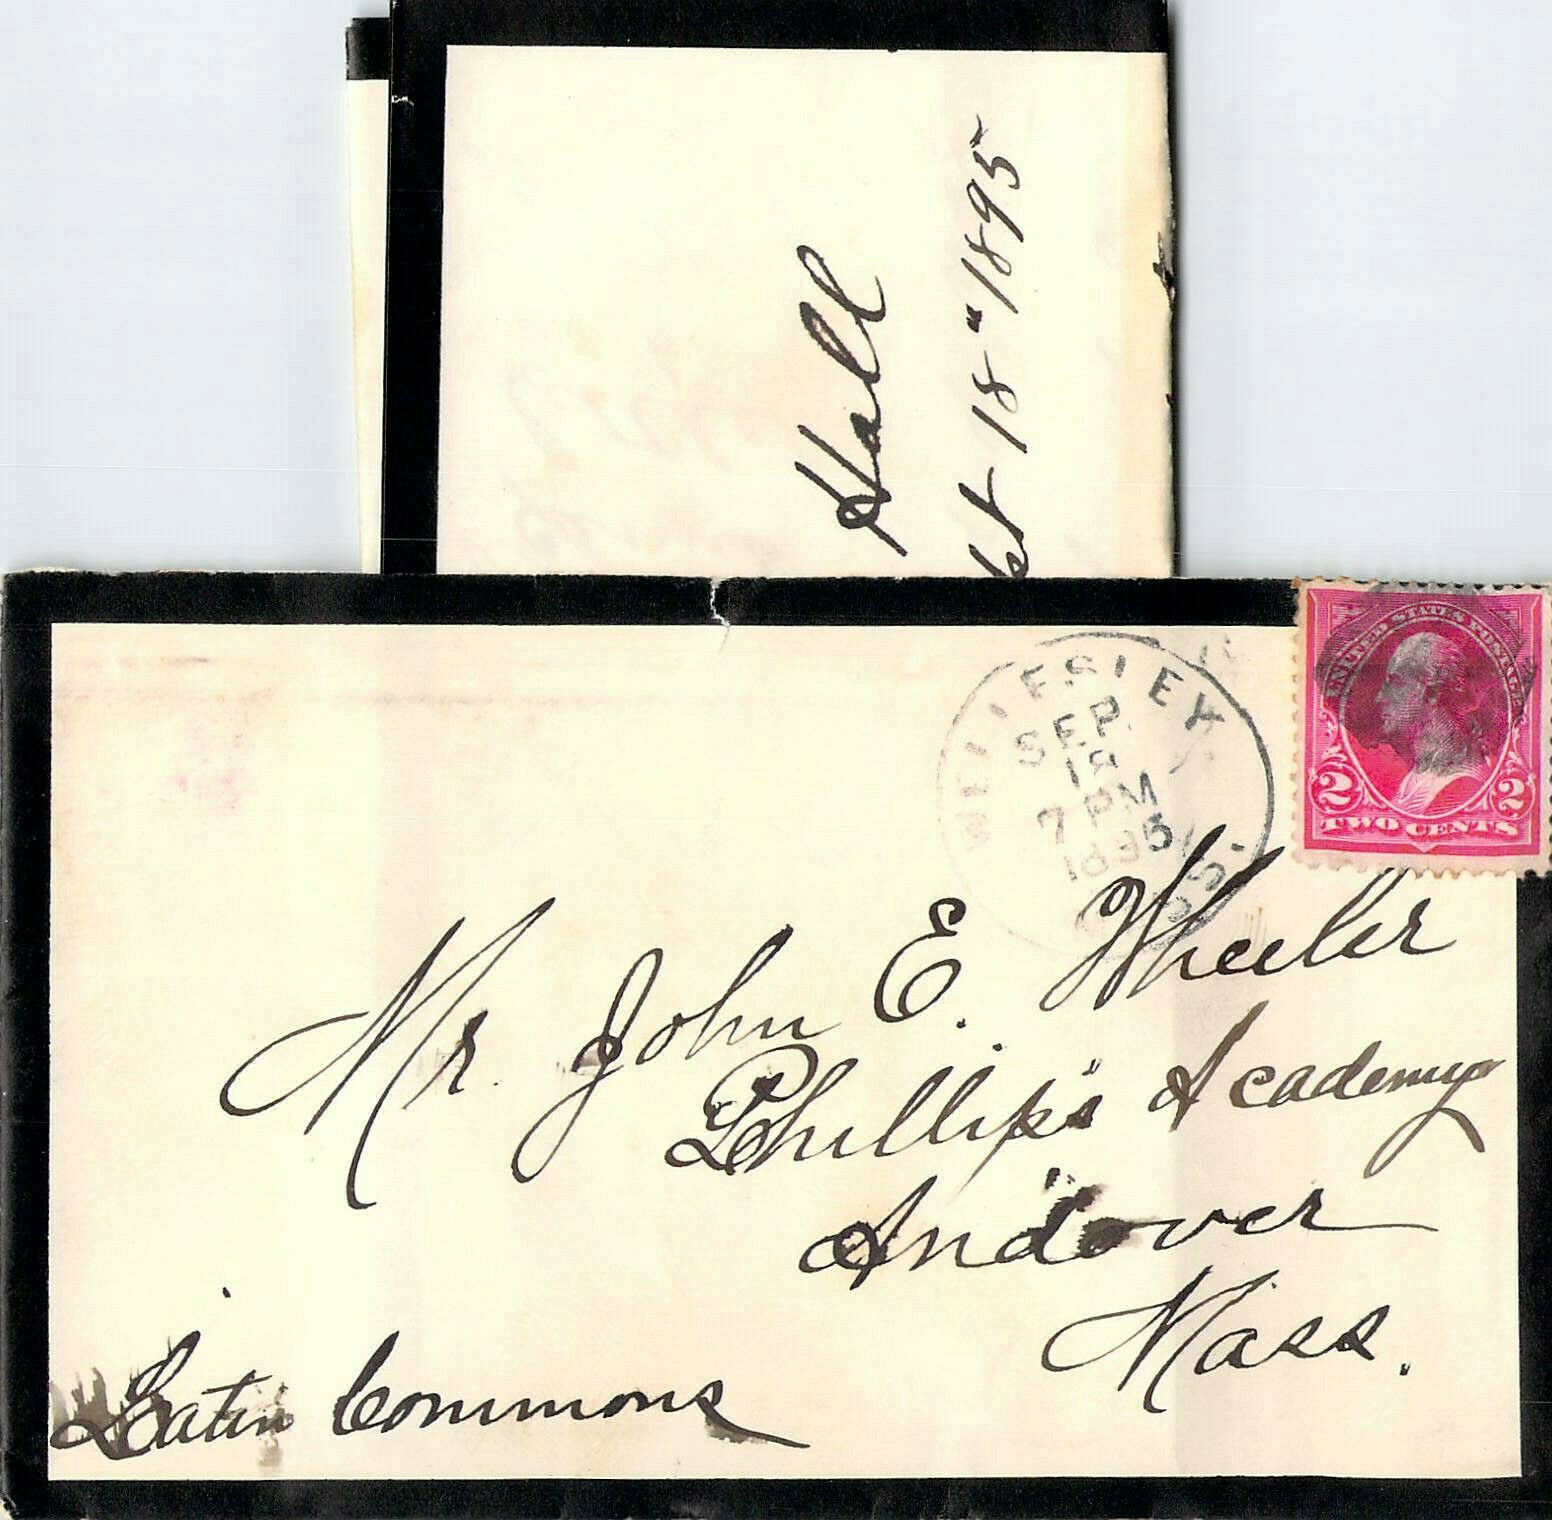 Hall
pt 18 " 1895
WELLESLEY
SEP.
18
7 PM
1895
MASS.
UNITED STATES POSTAGE
2 2
TWO CENTS
Mr. John E. Wheeler
Phillip's Academy
Andover
Mass.
Latin Commons